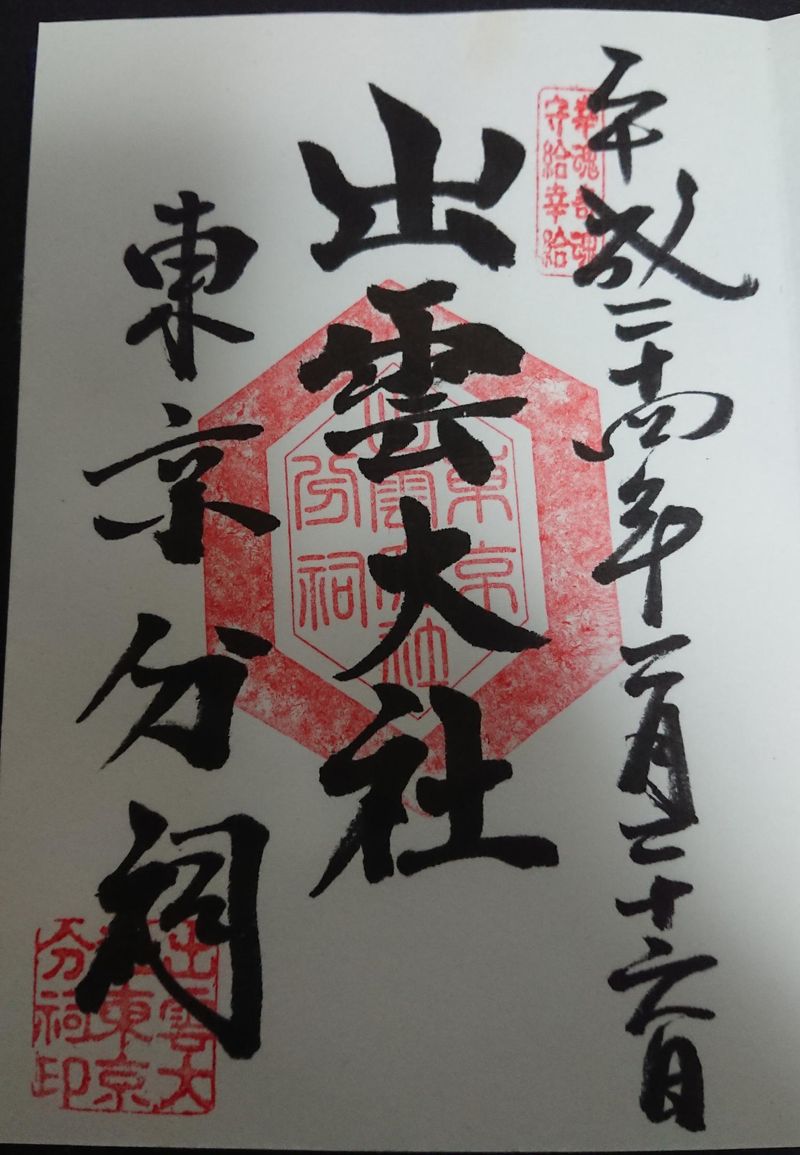 平成二十四年二月二十六日
幸魂奇魂
守給幸給
出雲大社
東京分祠
東京
出雲大社
分祠
出雲大
社東京
分祠印